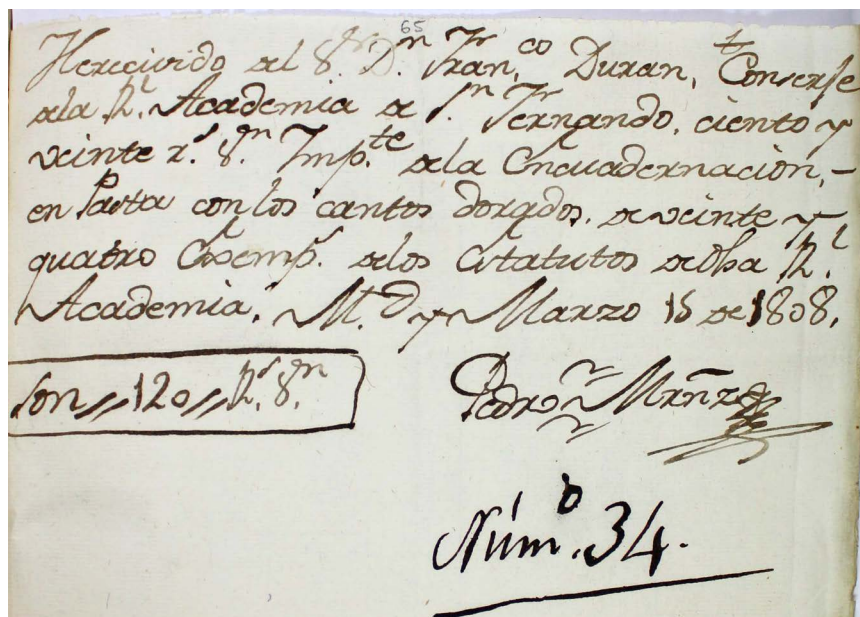 65
Herecivido del S.or D.n Fran.co Duran, Conserje
dela R.l Academia de S.n Fernando, ciento y
veinte r.s v.n Imp.te dela Encuadernacion,
en Pasta con los cantos dorados, de veinte y
quatro Exemp.s delos Estatutos de dha R.l
Academia. M.d y Marzo 15 de 1808.
Son // 120 // R.s v.n
Pedro Mrñz
Núm.o 34.